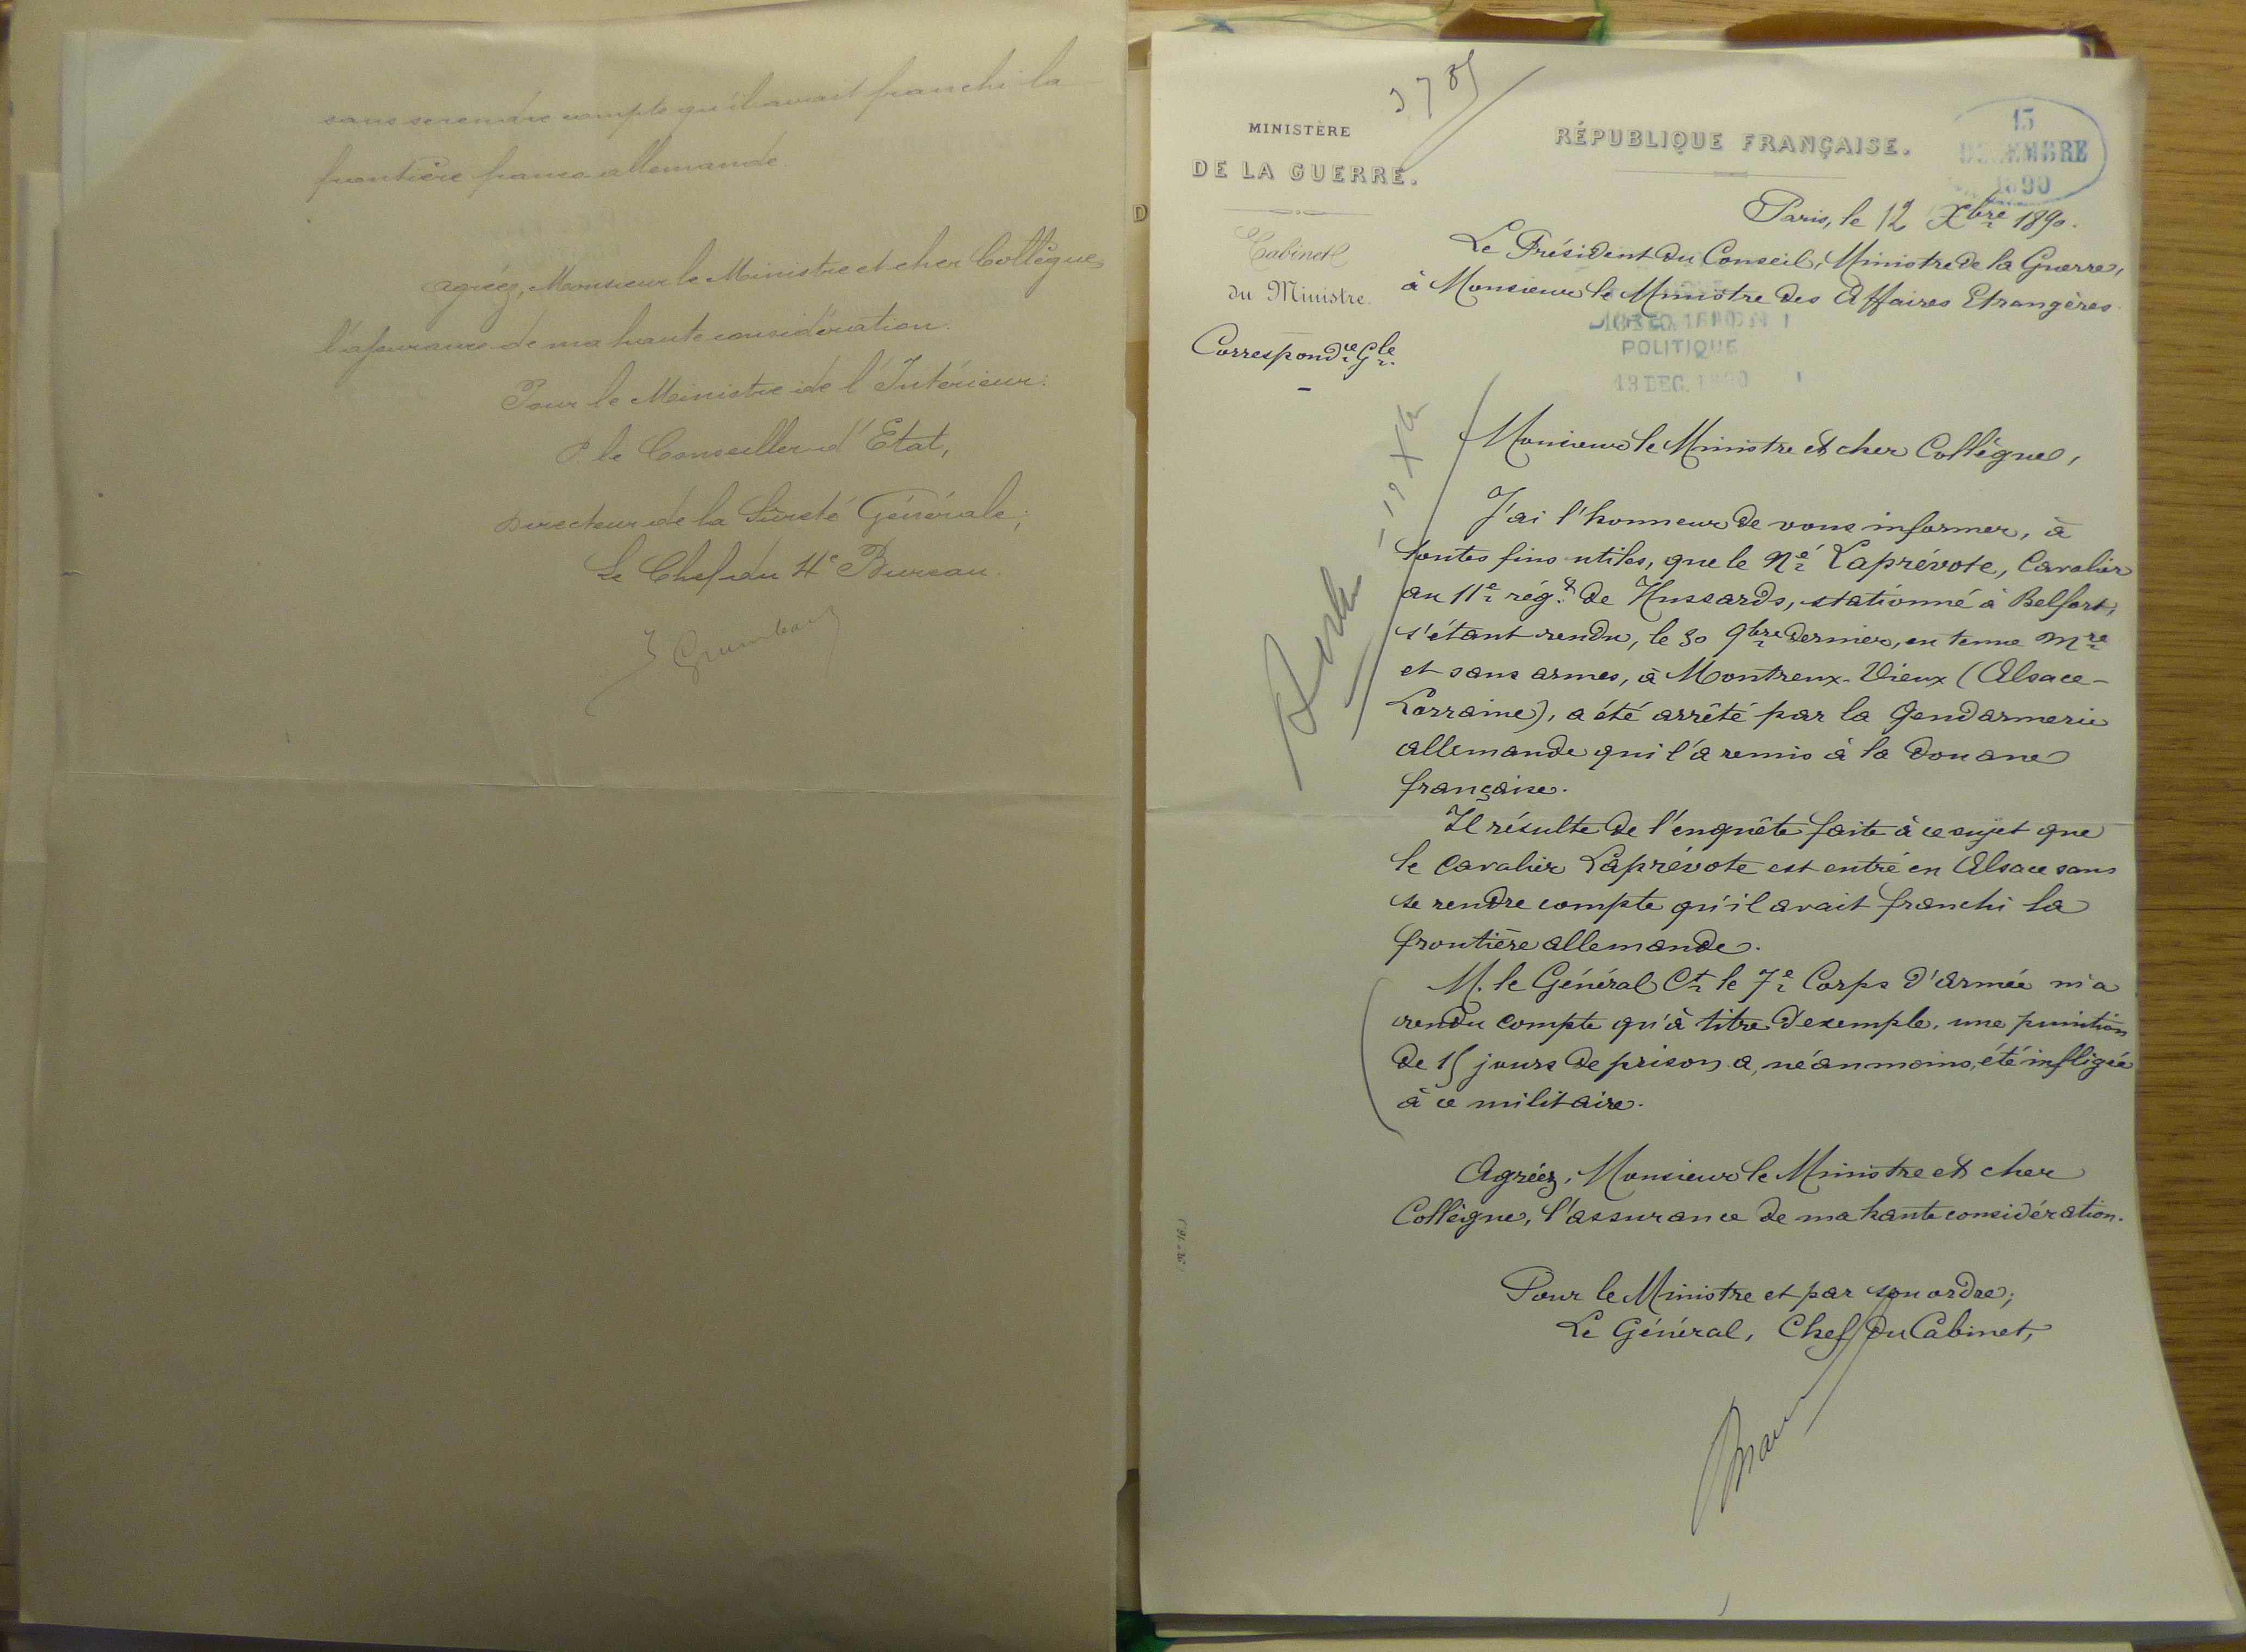 sans se rendre compte qu'il avait franchi la
frontière franco allemande.
Agréez, Monsieur le Ministre et cher Collègue,
l'assurance de ma haute considération.
Pour le Ministre de l'Intérieur:
P. le Conseiller d'Etat,
Directeur de la Sûreté Générale;
Le Chef du 4e Bureau.
MINISTÈRE
DE LA GUERRE.
Cabinet
du Ministre.
Correspondce Gle
RÉPUBLIQUE FRANÇAISE.
13
DECEMBRE
1890
Paris, le 12 Xbre 1890.
Le Président du Conseil, Ministre de la Guerre,
à Monsieur le Ministre des Affaires Etrangères.
POLITIQUE
13 DEC. 1890
Monsieur le Ministre et cher Collègue,
Berlin
J'ai l'honneur de vous informer, à
toutes fins utiles, que le né Laprévote, Cavalier
au 11e régt de Hussards, stationné à Belfort,
s'étant rendu, le 30 9bre dernier, en tenue mre
et sans armes, à Montreux-Vieux (Alsace-
Lorraine), a été arrêté par la Gendarmerie
allemande qui l'a remis à la Douane
française.
Il résulte de l'enquête faite à ce sujet que
le Cavalier Laprévote est entré en Alsace sans
se rendre compte qu'il avait franchi la
frontière allemande.
M. le Général Ct le 7e Corps d'armée m'a
rendu compte qu'à titre d'exemple, une punition
de 15 jours de prison a, néanmoins, été infligée
à ce militaire.
Agréez, Monsieur le Ministre et cher
Collègue, l'assurance de ma haute considération.
Pour le Ministre et par son ordre;
Le Général, Chef du Cabinet,